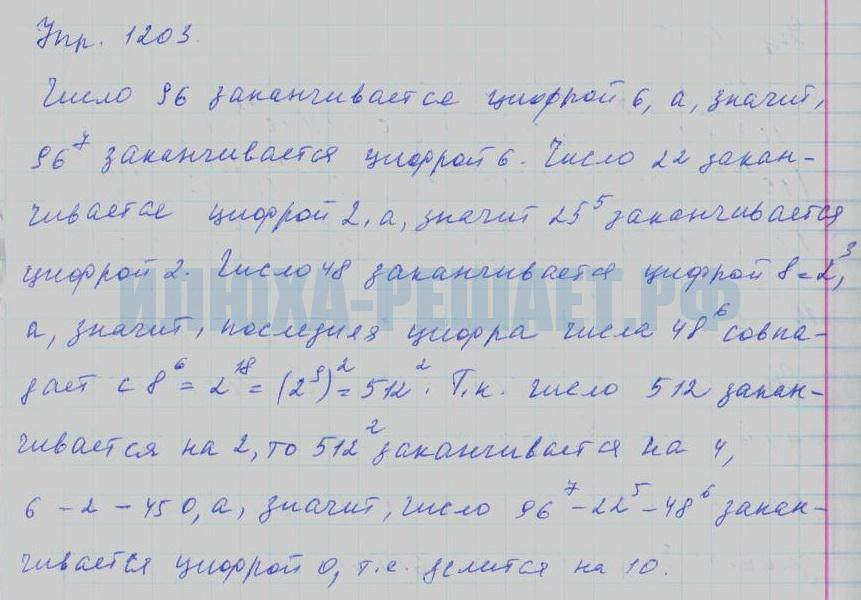 Упр. 1203.
Число 96 заканчивается цифрой 6, а, значит,
96⁷ заканчивается цифрой 6. Число 22 закан-
чивается цифрой 2, а, значит 25⁵ заканчивается
цифрой 2. Число 48 заканчивается цифрой 8=2³,
а, значит, последняя цифра числа 48⁶ совпа-
дает с 8⁶ = 2¹⁸ = (2⁹)² = 512². Т.к. число 512 закан-
чивается на 2, то 512² заканчивается на 4,
6 - 2 - 4 = 0, а, значит, число 96⁷ - 22⁵ - 48⁶ закан-
чивается цифрой 0, т.е. делится на 10.
ИЛЮХА-РЕШАЕТ.РФ